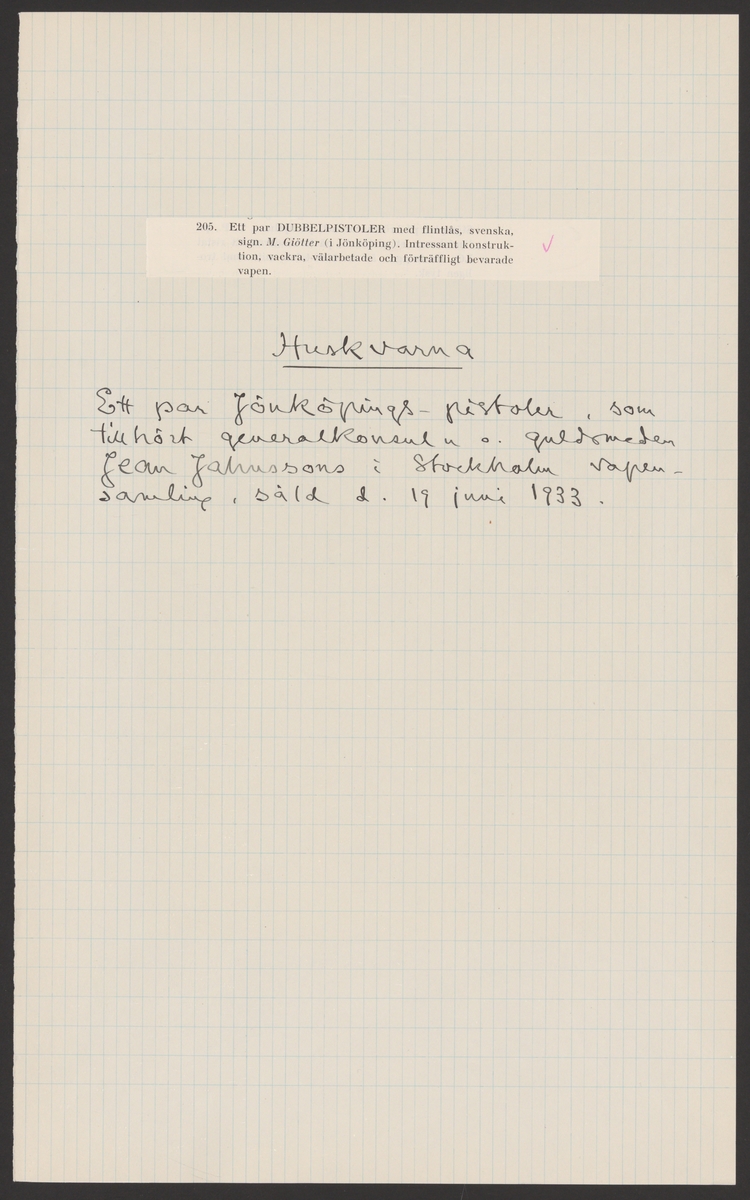 205. Ett par DUBBELPISTOLER med flintlås, svenska,
sign. M. Giötter (i Jönköping). Intressant konstruk-
tion, vackra, välarbetade och förträffligt bevarade
vapen.
Huskvarna
Ett par Jönköpings-pistoler, som
tillhört generalkonsuln o. guldsmeden
Jean Jahnssons i Stockholm vapen-
samling, såld d. 19 juni 1933.